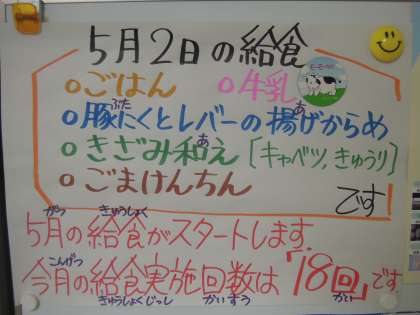 5月2日の給食
ごはん 牛乳
豚にくとレバーの揚げからめ
きざみ和え [キャベツ, きゅうり]
ごまけんちん
です
5月の給食がスタートします。
今月の給食実施回数は「18回」です